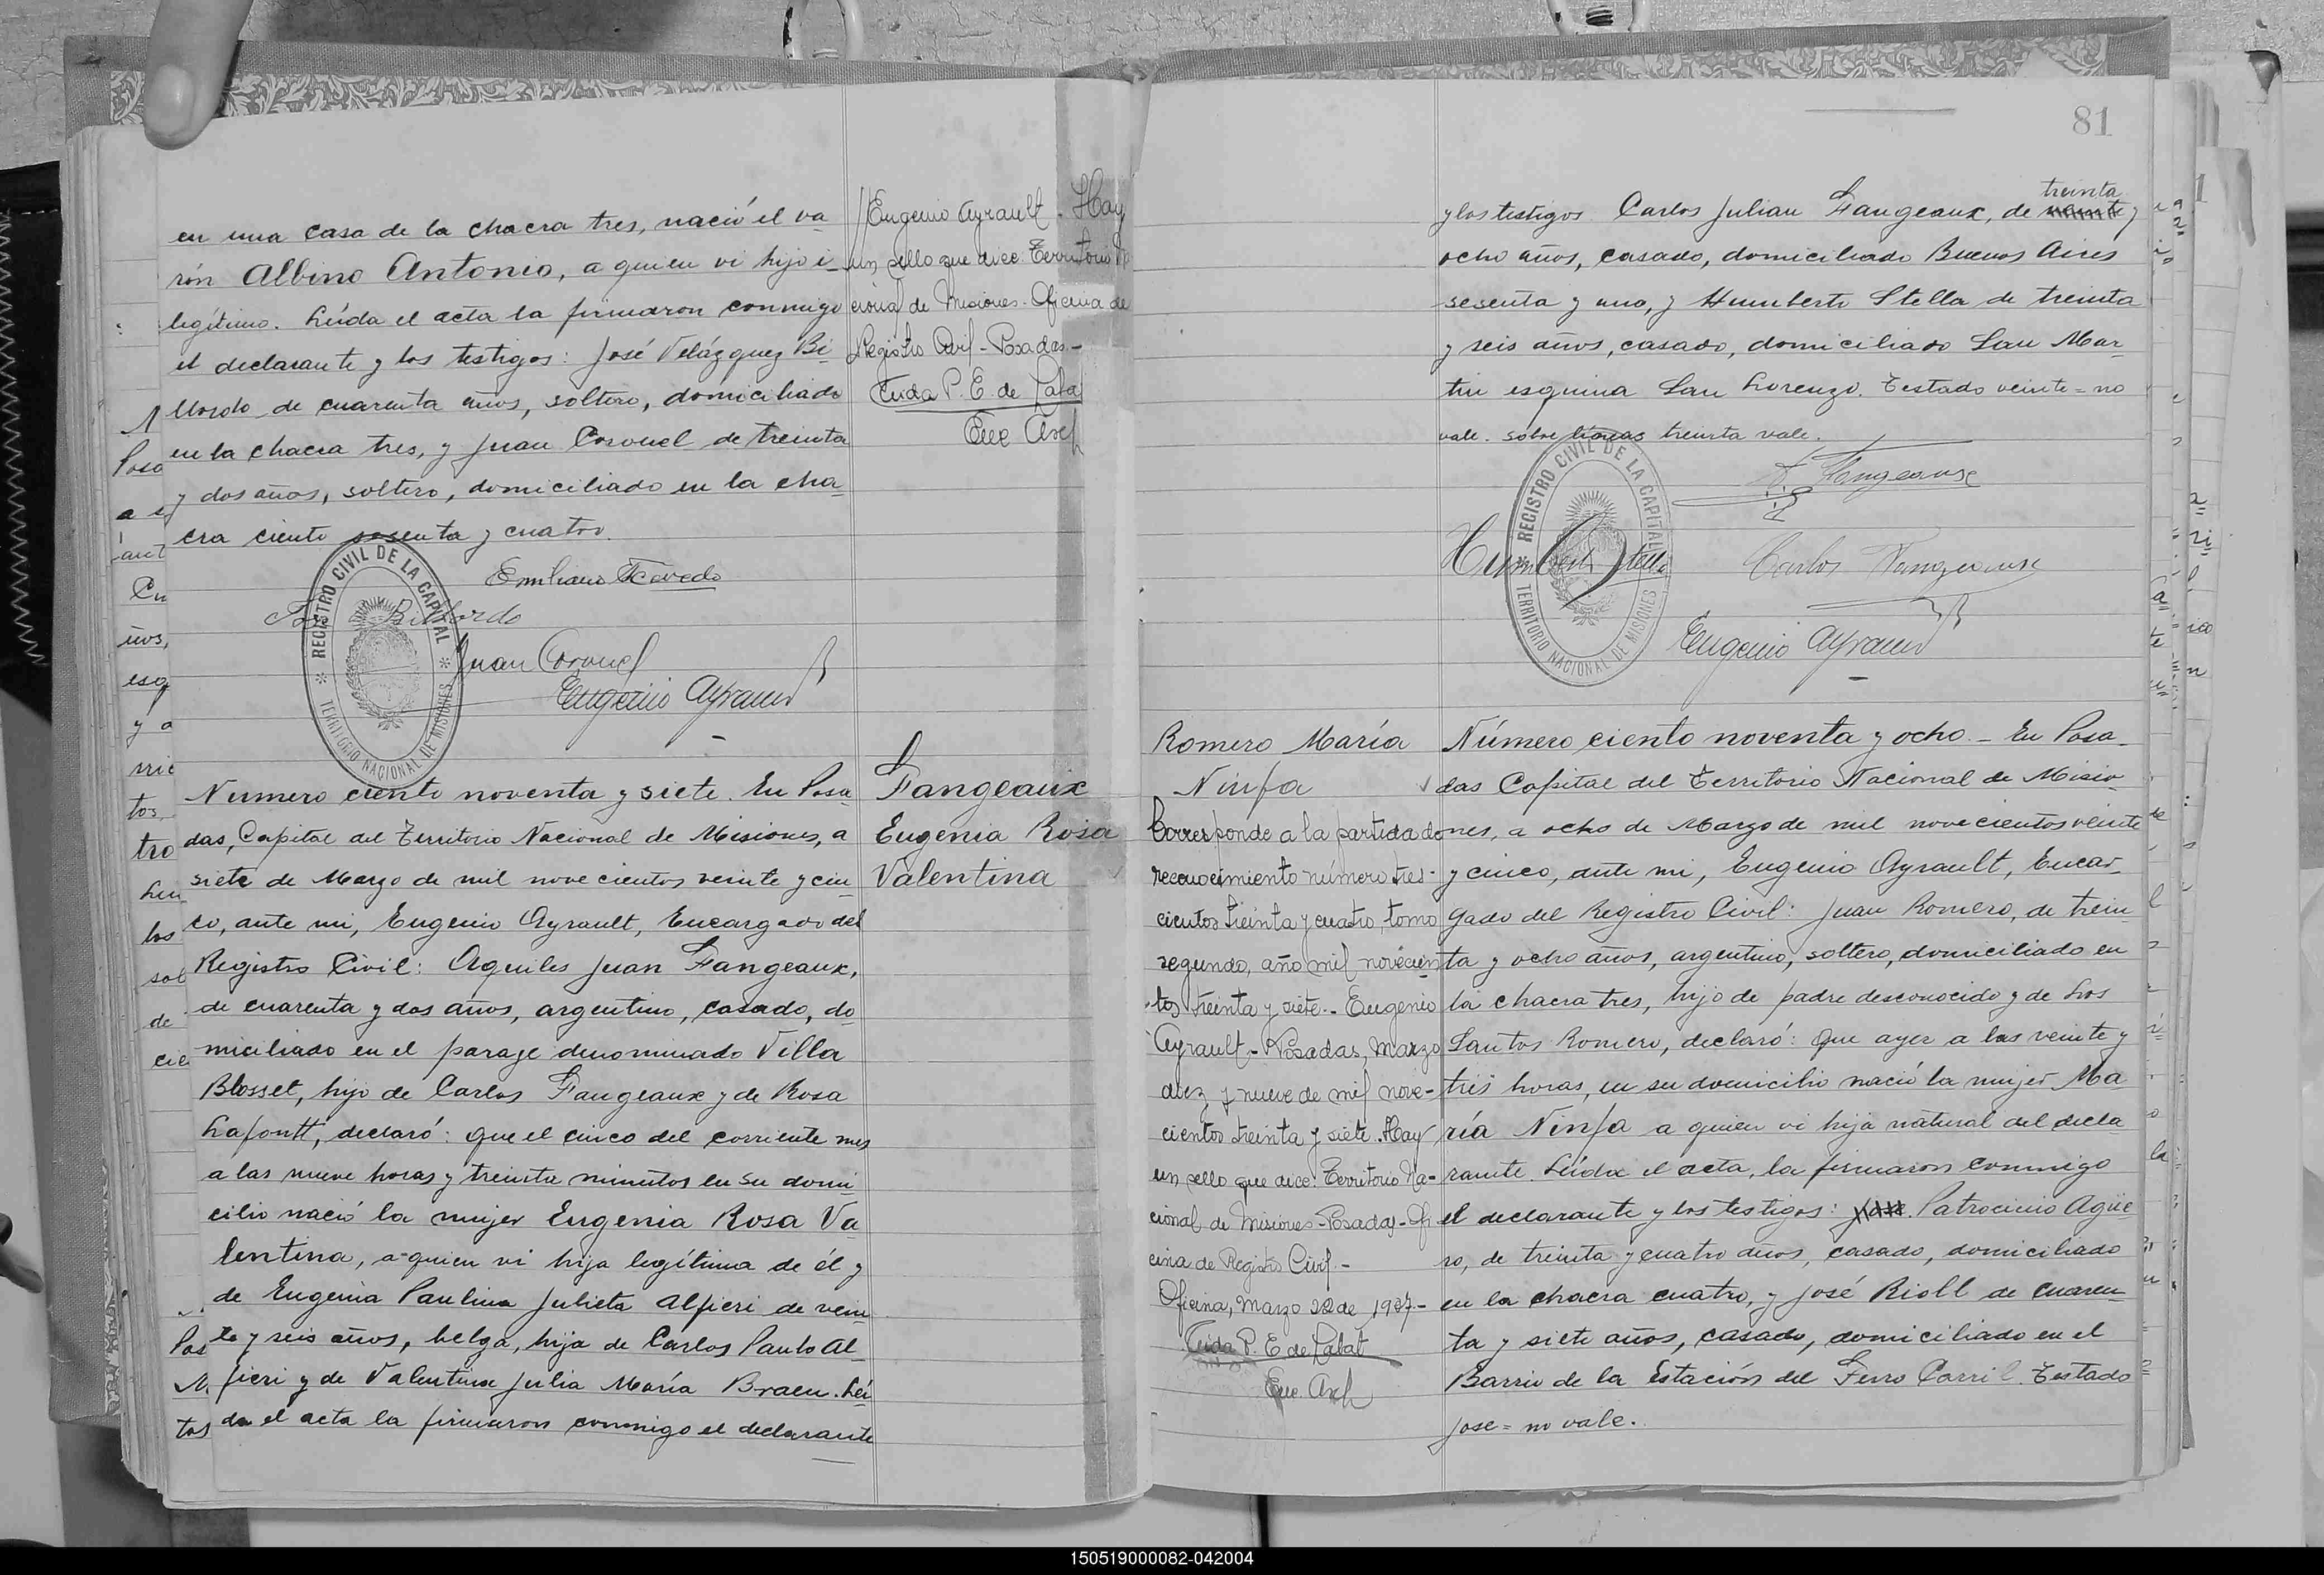 en una casa de la chacra tres, nació el va-
rón Albino Antonio, a quien vi hijo i-
legítimo. Leída el acta la firmaron conmigo
el declarante y los testigos: José Velázquez Bi-
llordo de cuarenta años, soltero, domiciliado
en la chacra tres, y Juan Coronel de treinta
y dos años, soltero, domiciliado en la cha-
cra ciento sesenta y cuatro.
Emiliano Acevedo
Billordo
Juan Coronel
Eugenio Ayrault
REGISTRO CIVIL DE LA CAPITAL
TERRITORIO NACIONAL DE MISIONES
Eugenio Ayrault. Hay
un sello que dice: Territorio Na-
cional de Misiones-Oficina de
Registro Civil-Posadas.-
P. E. de Labat
Numero ciento noventa y siete. En Posa-
das, Capital del Territorio Nacional de Misiones, a
siete de Marzo de mil novecientos veinte y cin-
co, ante mi, Eugenio Ayrault, Encargado del
Registro Civil: Aquiles Juan Fangeaux,
de cuarenta y dos años, argentino, casado, do-
miciliado en el paraje denominado Villa
Blosset, hijo de Carlos Fangeaux y de Rosa
Lafontt, declaró: que el cinco del corriente mes
a las nueve horas y treinta minutos en su domi-
cilio nació la mujer Eugenia Rosa Va-
lentina, a quien vi hija legítima de él y
de Eugenia Paulina Julieta Alfieri de vein-
te y seis años, belga, hija de Carlos Paulo Al-
fieri y de Valentina Julia María Braeu. Leí-
da el acta la firmaron conmigo el declarante
Fangeaux
Eugenia Rosa
Valentina
81
y los testigos Carlos Julian Fangeaux, de treinta y
ocho años, casado, domiciliado Buenos Aires
sesenta y uno, y Humberto Stella de treinta
y seis años, casado, domiciliado San Mar-
tin esquina San Lorenzo. Testado veinte = no
vale. sobre lineas treinta vale.
Fangeaux
Humberto Stella
Carlos Fangeaux
Eugenio Ayrault
REGISTRO CIVIL DE LA CAPITAL
TERRITORIO NACIONAL DE MISIONES
Romero María
Ninfa
Corresponde a la partida de
reconocimiento número tres-
cientos treinta y cuatro, tomo
segundo, año mil novecien-
tos treinta y siete.- Eugenio
Ayrault.- Posadas, Marzo
diez y nueve de mil nove-
cientos treinta y siete. Hay
un sello que dice: Territorio Na-
cional de Misiones-Posadas-Ofi-
cina de Registro Civil.-
Oficina, Marzo 22 de 1937.-
P. E. de Labat
Número ciento noventa y ocho - En Posa-
das Capital del Territorio Nacional de Misio-
nes, a ocho de Marzo de mil novecientos veinte
y cinco, ante mi, Eugenio Ayrault, Encar-
gado del Registro Civil: Juan Romero, de trein-
ta y ocho años, argentino, soltero, domiciliado en
la chacra tres, hijo de padre desconocido y de Los
Santos Romero, declaró: que ayer a las veinte y
tres horas, en su domicilio nació la mujer Ma-
ría Ninfa a quien vi hija natural del decla-
rante. Leída el acta, la firmaron conmigo
el declarante y los testigos: Patrocinio Agüe-
ro, de treinta y cuatro años, casado, domiciliado
en la chacra cuatro, y José Rioll de cuaren-
ta y siete años, casado, domiciliado en el
Barrio de la Estación del Ferro Carril. Testado
Jose = no vale.
150519000082-042004